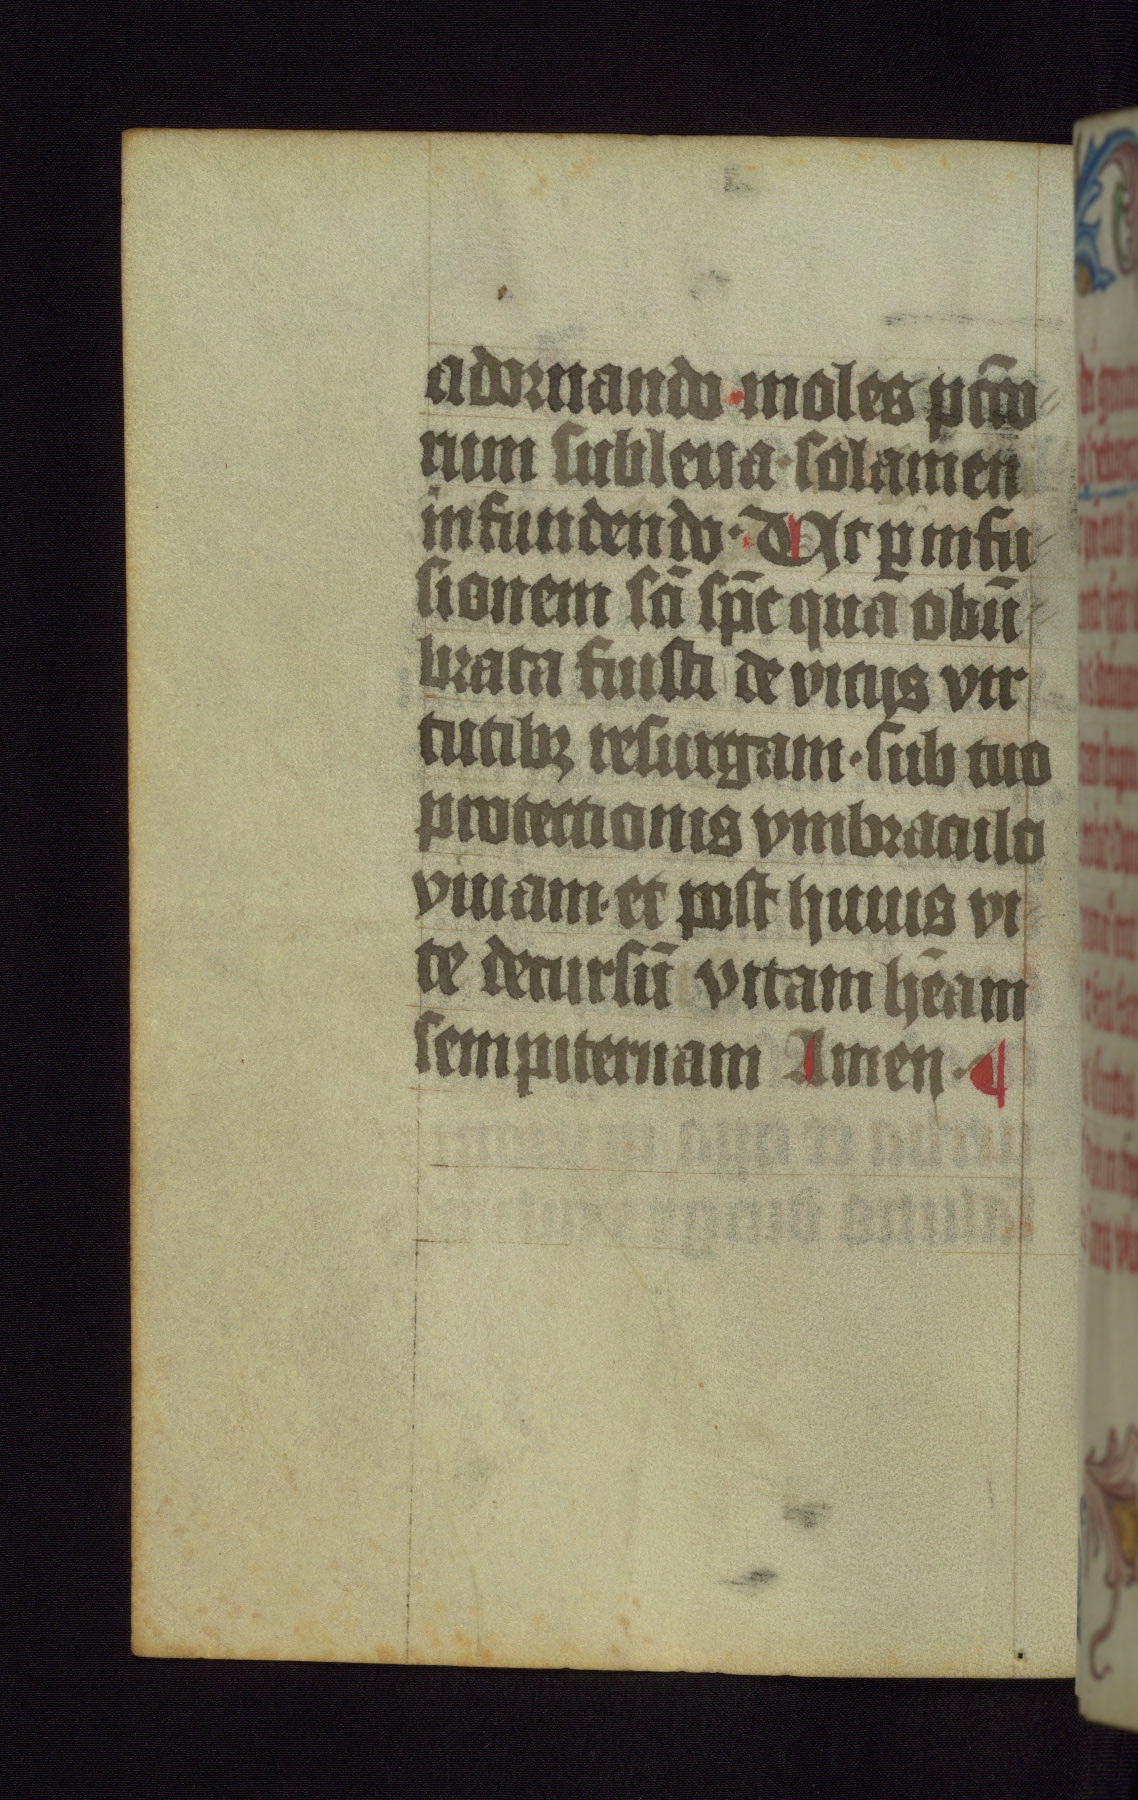 adornando · moles pct̄o
rum subleua · solamen
infundendo · Ut ꝑ infu
sionem sc̄i sp̄c qua obū
brata fuisti de vicijs vir
tutibꝫ resurgam · sub tuo
protectionis vmbraculo
viuam · et post huius vi
te decursū vitam hēam
sempiternam Amen ·